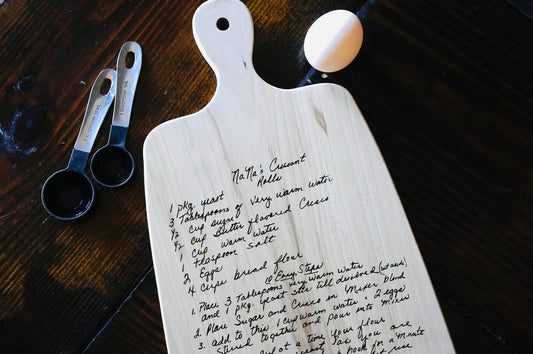 NaNa's Crescent
Rolls
1 pkg. yeast
3 Tablespoons of very warm water
1/2 cup sugar
1/2 cup Butter flavored Crisco
1 cup warm water
1 teaspoon salt
2 Eggs
4 cups bread flour
10 Easy Steps
1. Place 3 Tablespoons very warm water
and 1 pkg. yeast stir till dissolved
2. Place Sugar and Crisco in Mixer blend
3. add to this 1 cup warm water + 2 eggs
Stirred together and pour into mixer
cup at a time your flour
as you are
hook for a 4 minute